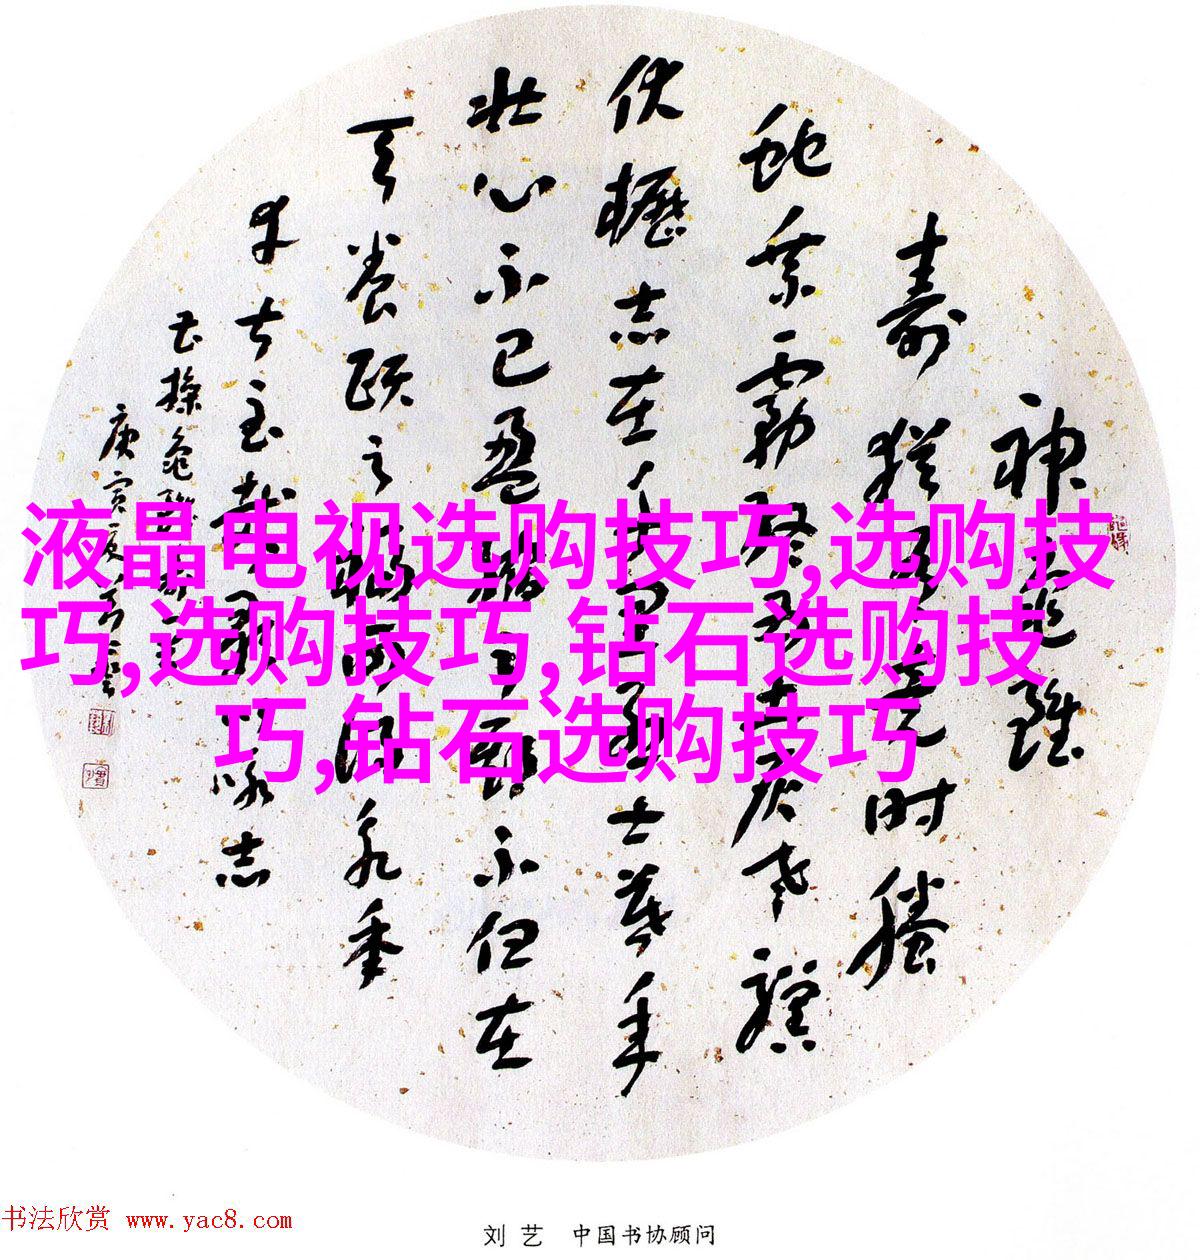 神龜雖
壽猶有竟时螣
蛇乘霧終為土灰老驥
伏櫪志在千里烈士暮年
壮心不已盈縮之期不但在
天養頤之福可得永年
幸甚至哉歌以咏志
曹操龜雖壽
庚寅夏刘艺
液晶电视选购技巧,选购技
巧,选购技巧,钻石选购技
巧,钻石选购技巧
书法欣赏 www.yac8.com
刘艺 中国书协顾问